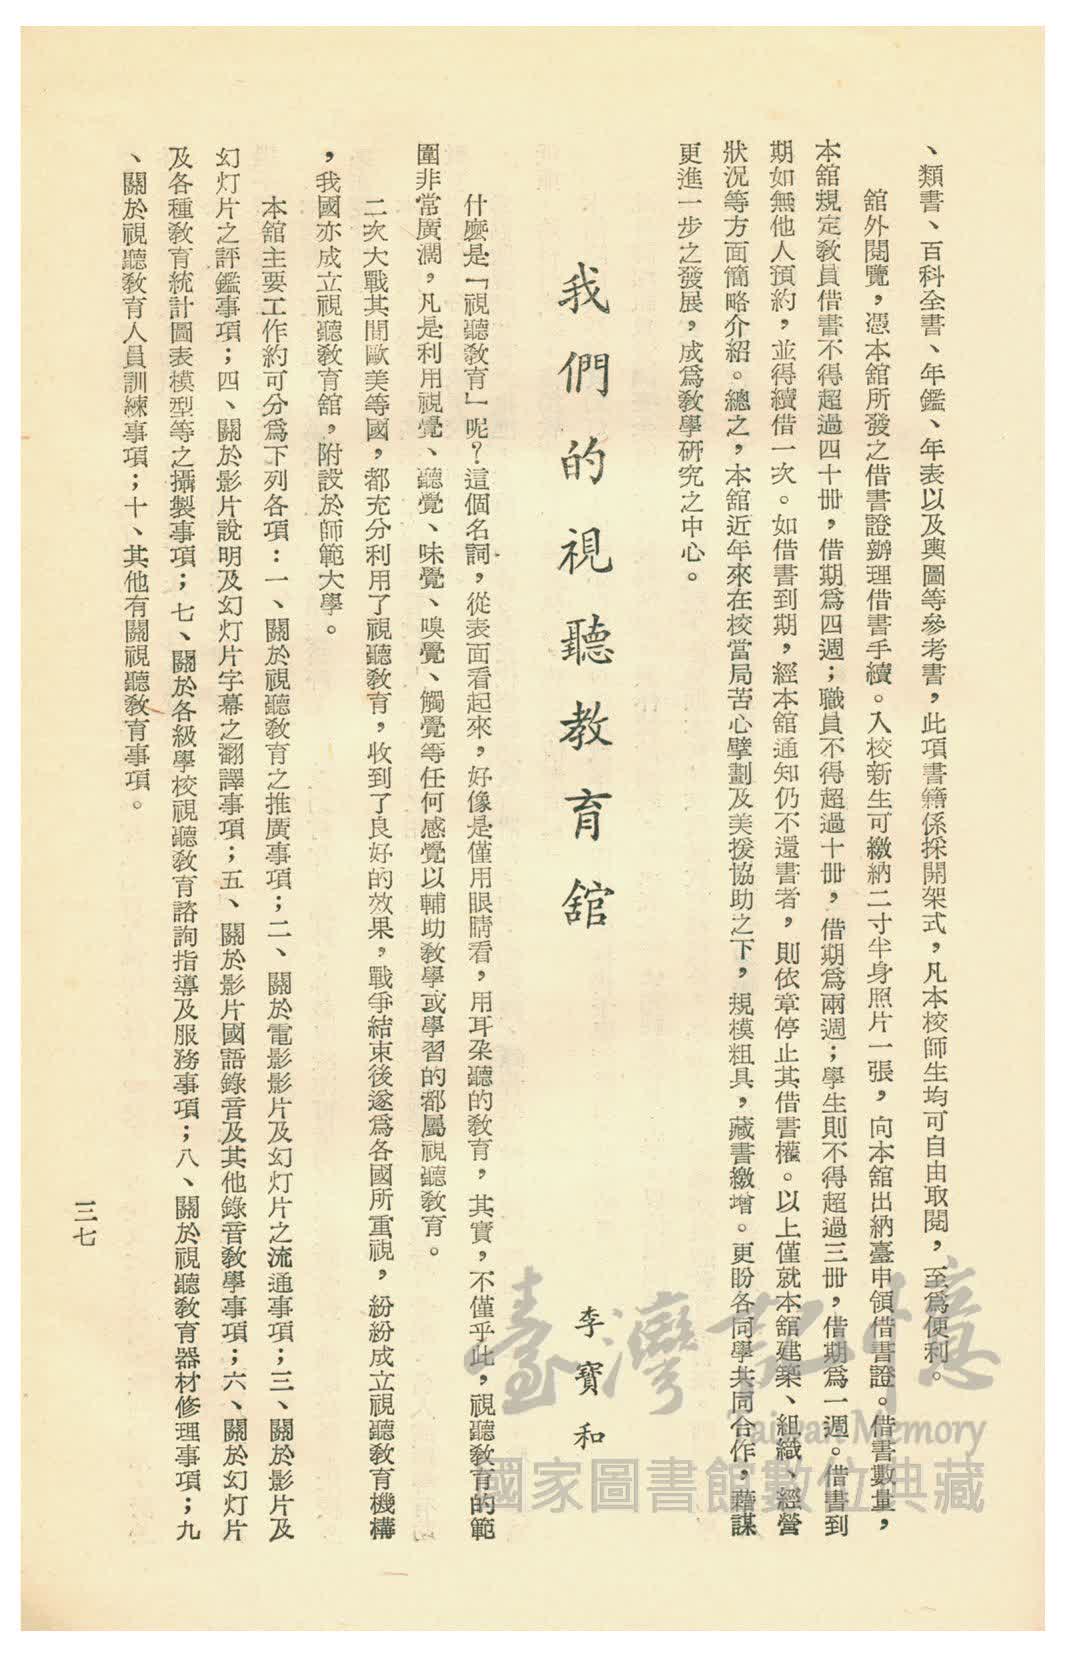 、類書、百科全書、年鑑、年表以及輿圖等參考書，此項書籍係採開架式，凡本校師生均可自由取閱，至爲便利。
館外閱覽，憑本舘所發之借書證辦理借書手續。入校新生可繳納二寸半身照片一張，向本舘出納臺申領借書證。借書數量，
本舘規定敎員借書不得超過四十册，借期爲四週；職員不得超過十册，借期爲兩週；學生則不得超過三册，借期爲一週。借書到
期如無他人預約，並得續借一次。如借書到期，經本舘通知仍不還書者，則依章停止其借書權。以上僅就本舘建築、組織、經營
狀況等方面簡略介紹。總之，本舘近年來在校當局苦心擘劃及美援協助之下，規模粗具，藏書繳增。更盼各同學共同合作，藉謀
更進一步之發展，成爲敎學硏究之中心。
我們的視聽教育舘
李寶和
什麼是「視聽敎育」呢？這個名詞，從表面看起來，好像是僅用眼睛看，用耳朶聽的敎育，其實，不僅乎此，視聽敎育的範
圍非常廣濶，凡是利用視覺、聽覺、味覺、嗅覺、觸覺等任何感覺以輔助敎學或學習的都屬視聽敎育。
二次大戰其間歐美等國，都充分利用了視聽敎育，收到了良好的效果，戰爭結束後遂爲各國所重視，紛紛成立視聽敎育機構
，我國亦成立視聽敎育舘，附設於師範大學。
本舘主要工作約可分爲下列各項：一、關於視聽敎育之推廣事項；二、關於電影影片及幻灯片之流通事項；三、關於影片及
幻灯片之評鑑事項；四、關於影片說明及幻灯片字幕之翻譯事項；五、關於影片國語錄音及其他錄音敎學事項；六、關於幻灯片
及各種敎育統計圖表模型等之攝製事項；七、關於各級學校視聽敎育諮詢指導及服務事項；八、關於視聽敎育器材修理事項；九
、關於視聽敎育人員訓練事項；十、其他有關視聽敎育事項。
三七
臺灣記憶
Taiwan Memory
國家圖書館數位典藏